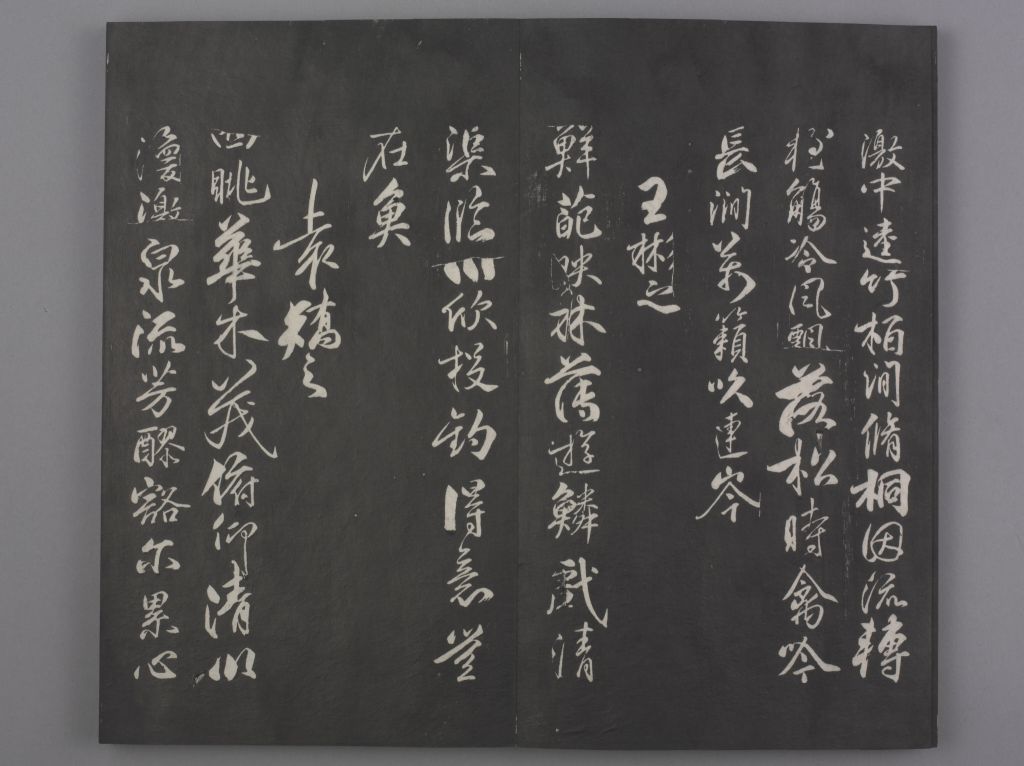 激中逵竹柏間脩桐因流轉
輕觴冷風飄落松時禽吟
長澗萬籟吹連岑
王彬之
鮮葩映林薄遊鱗戲清
渠臨川欣投釣得意豈
在魚
袁嶠之
四眺華木茂俯仰清川
渙激泉流芳醪豁尒累心